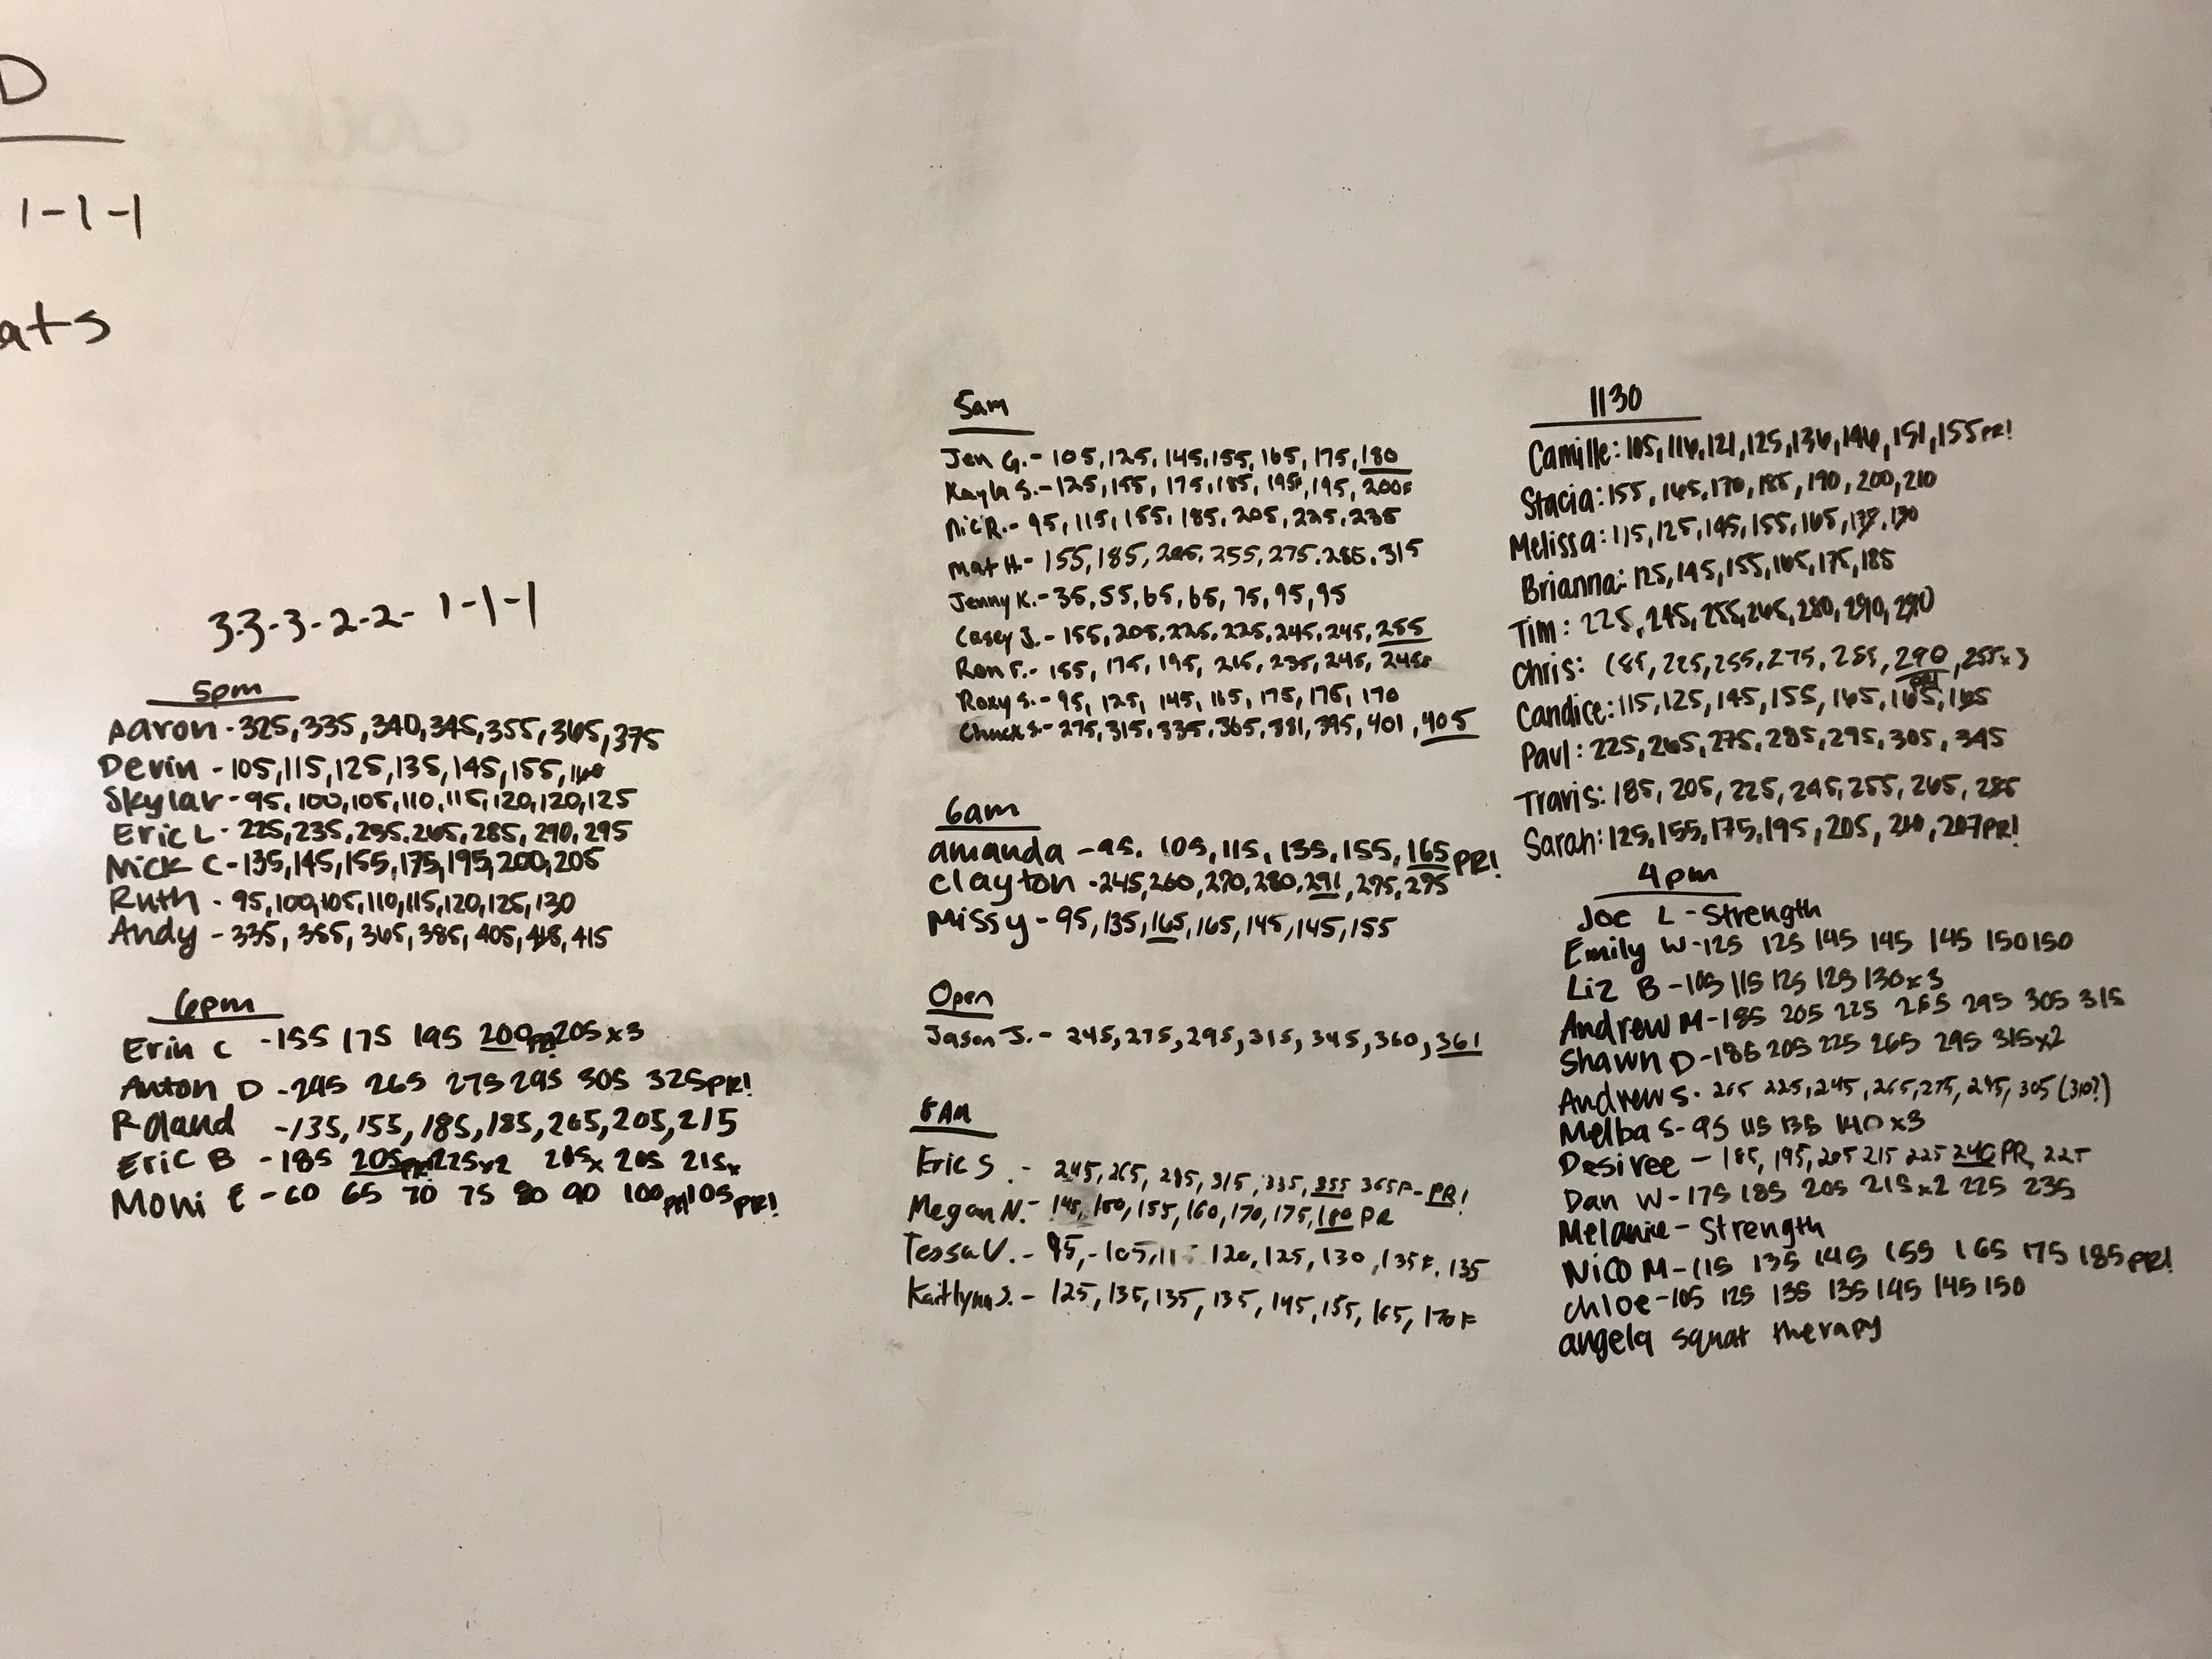 D
1-1-1
ats
3-3-3-2-2-1-1-1
5pm
Aaron - 325, 335, 340, 345, 355, 365, 375
Devin - 105, 115, 125, 135, 145, 155,
Skylar - 95, 100, 105, 110, 115, 120, 120, 125
Eric L - 225, 235, 255, 265, 285, 290, 295
Nick C - 135, 145, 155, 175, 195, 200, 205
Ruth - 95, 100, 105, 110, 115, 120, 125, 130
Andy - 335, 355, 365, 385, 405, 415
6pm
Erin C - 155 175 195 200 PR 205 x 3
Anton D - 245 265 275 295 305 325 PR!
Roland - 135, 155, 185, 185, 205, 205, 215
Eric B - 185 205 PR 225 x 2 215x 205 215x
Moni E - 60 65 70 75 80 90 100 PR 105 PR!
5am
Jen G. - 105, 125, 145, 155, 165, 175, 180
Kayla S. - 125, 155, 175, 185, 195F, 195, 200F
Nic R. - 95, 115, 155, 185, 205, 225, 235
Mat H. - 155, 185, 225, 255, 275, 285, 315
Jenny K. - 35, 55, 65, 65, 75, 95, 95
Casey J. - 155, 205, 225, 225, 245, 245, 255
Ron F. - 155, 175, 195, 215, 235, 245, 245F
Roxy S. - 95, 125, 145, 165, 175, 175, 170
Chuck S. - 275, 315, 335, 365, 381, 395, 401, 405
6am
amanda - 95, 105, 115, 135, 155, 165 PR!
Clayton - 245, 260, 270, 280, 291, 275, 275
Missy - 95, 135, 165, 165, 145, 145, 155
Open
Jason J. - 245, 275, 295, 315, 345, 360, 361
8AM
Eric S. - 245, 265, 285, 315, 335, 355 365F - PR!
Megan N. - 145, 150, 155, 160, 170, 175, 180 PR
Tessa V. - 95, - 105, 120, 125, 130, 135F, 135
Kaitlynn S. - 125, 135, 135, 135, 145, 155, 165, 170F
1130
Camille: 105, 116, 121, 125, 136, 146, 151, 155 PR!
Stacia: 155, 165, 170, 185, 190, 200, 210
Melissa: 115, 125, 145, 155, 165,
Brianna: 125, 145, 155, 165, 175, 185
Tim: 225, 245, 255, 265, 280, 290, 290
Chris: 185, 225, 255, 275, 285, 290 PR!, 255 x 3
Candice: 115, 125, 145, 155, 165, 165, 165
Paul: 225, 265, 275, 285, 295, 305, 345
Travis: 185, 205, 225, 245, 255, 265, 285
Sarah: 125, 155, 175, 195, 205, 210, 207 PR!
4pm
Joe L - Strength
Emily W - 125 125 145 145 145 150 150
Liz B - 105 115 125 125 130 x 3
Andrew M - 185 205 225 265 295 305 315
Shawn D - 185 205 225 265 295 315 x 2
Andrew S. 205 225, 245, 265, 275, 295, 305 (310?)
Melba S - 95 115 135 140 x 3
Desiree - 185, 195, 205 215 225 240 PR, 225
Dan W - 175 185 205 215 x 2 225 235
Melanie - Strength
Nico M - 115 135 145 155 165 175 185 PR!
chloe - 105 125 135 135 145 145 150
angela squat therapy